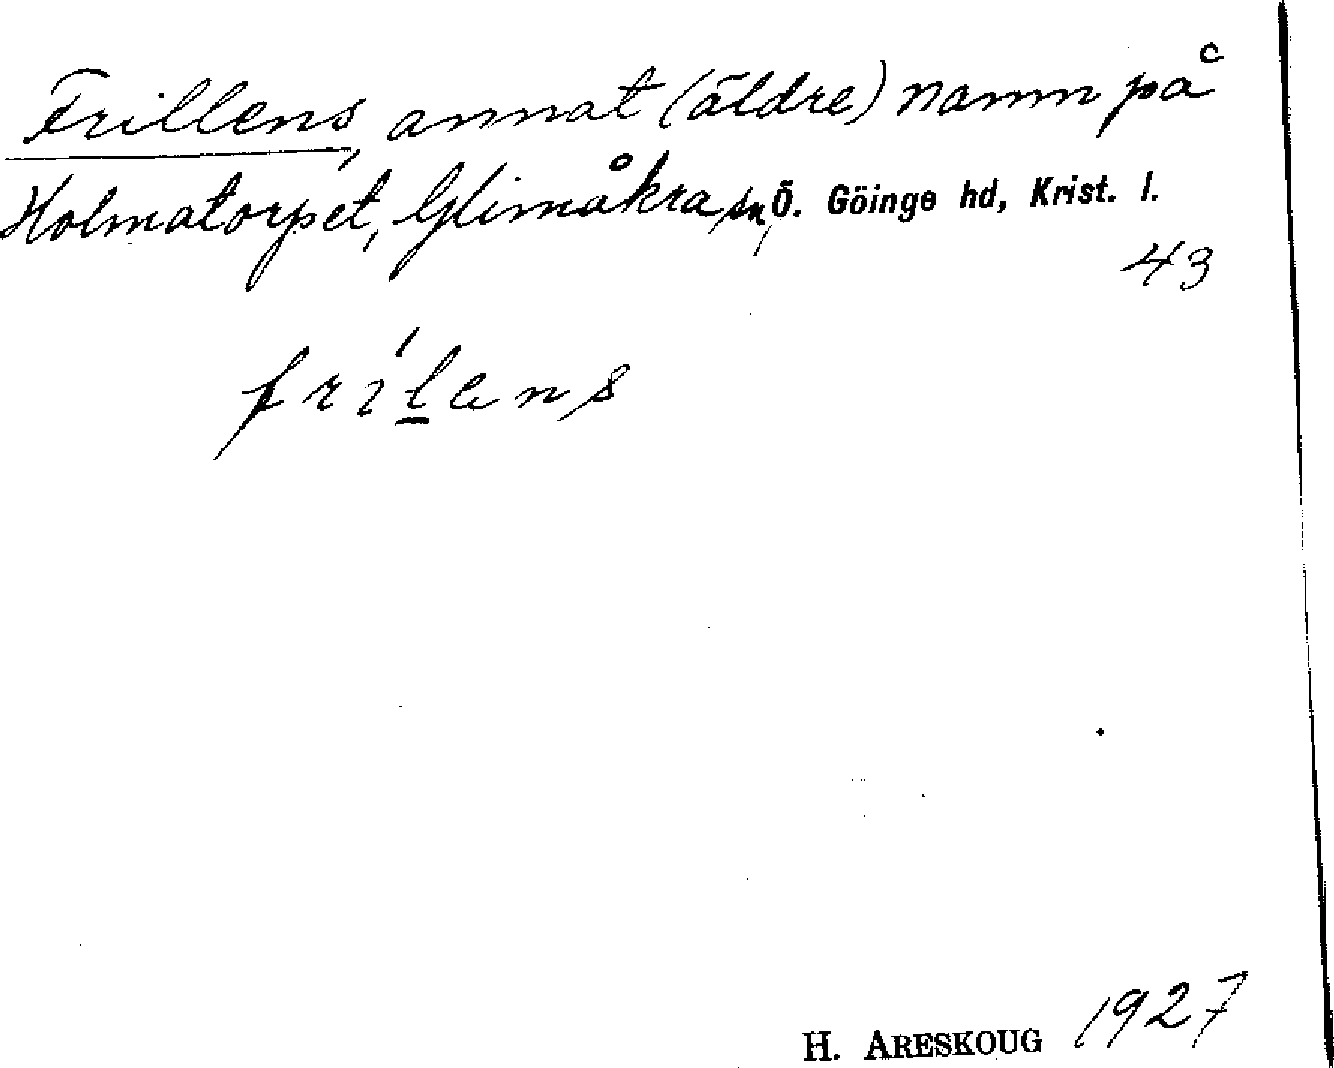 Frillens, annat (äldre) namn på
Holmatorpet, Glimåkra sn, Ö. Göinge hd, Krist. l.
43
frílens
H. ARESKOUG 1927